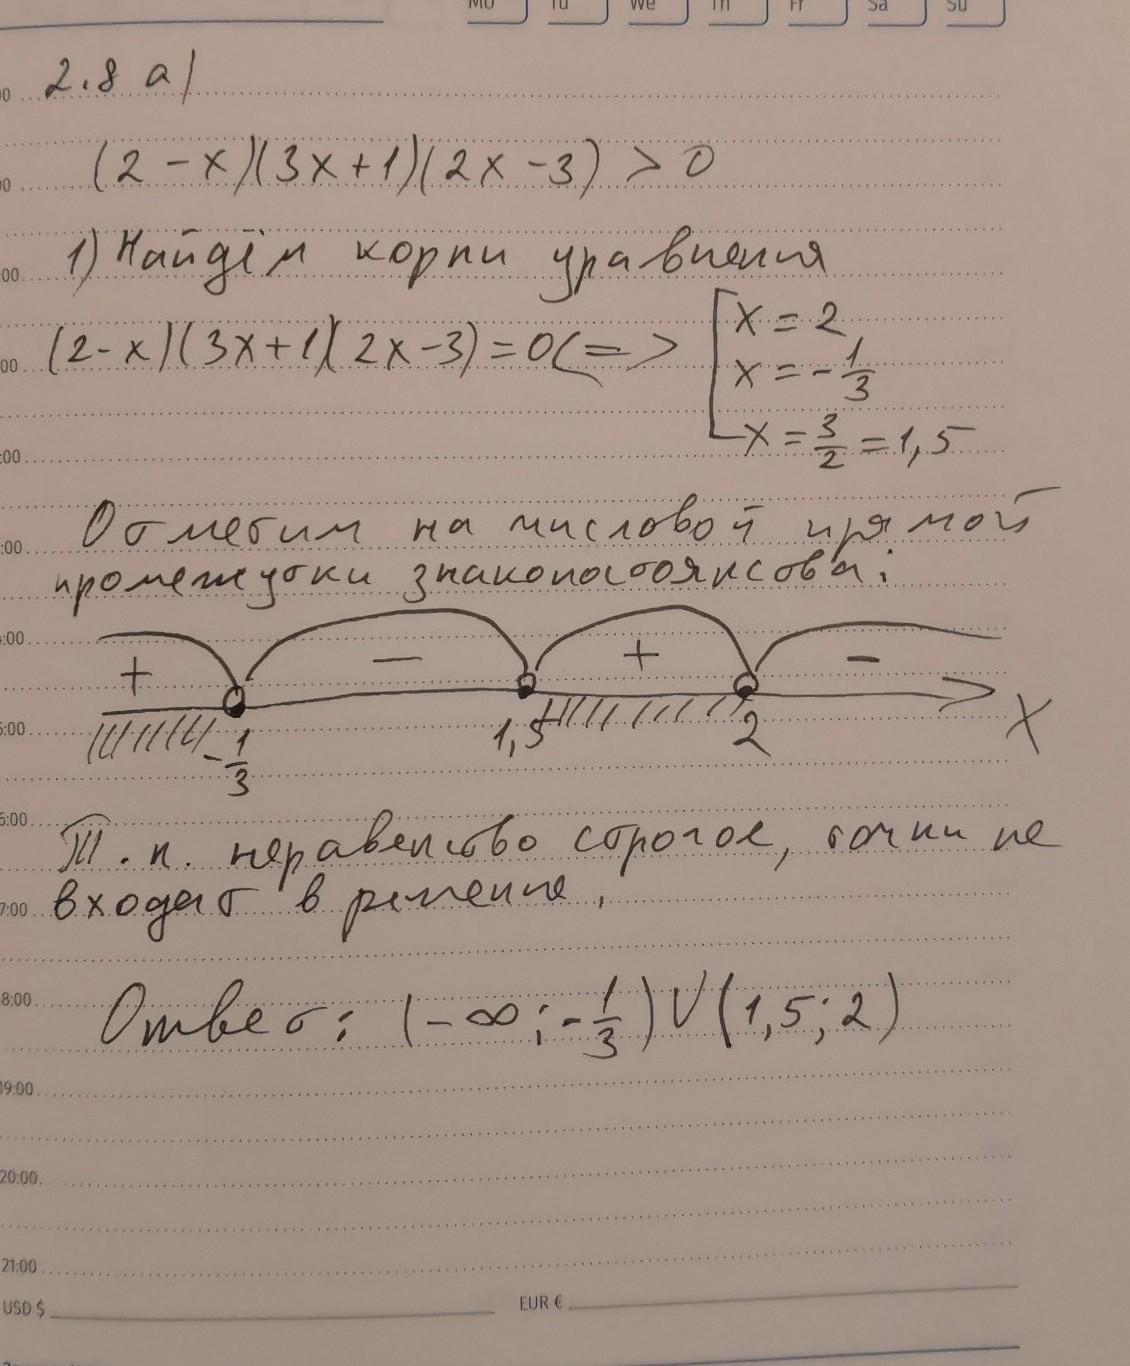 Mo Tu We Th Fr Sa Su
2.8 а)
(2-x)(3x+1)(2x-3) > 0
1) Найдём корни уравнения
(2-x)(3x+1)(2x-3)=0 <=> [x = 2
x = -1/3
x = 3/2 = 1,5
Отметим на числовой прямой
промежутки знакопостоянства:
+ − + −
-1/3 1,5 2 X
Т.к. неравенство строгое, точки не
входят в решение.
Ответ: (-∞; -1/3) ∪ (1,5; 2)
19:00
20:00
21:00
USD $ EUR €